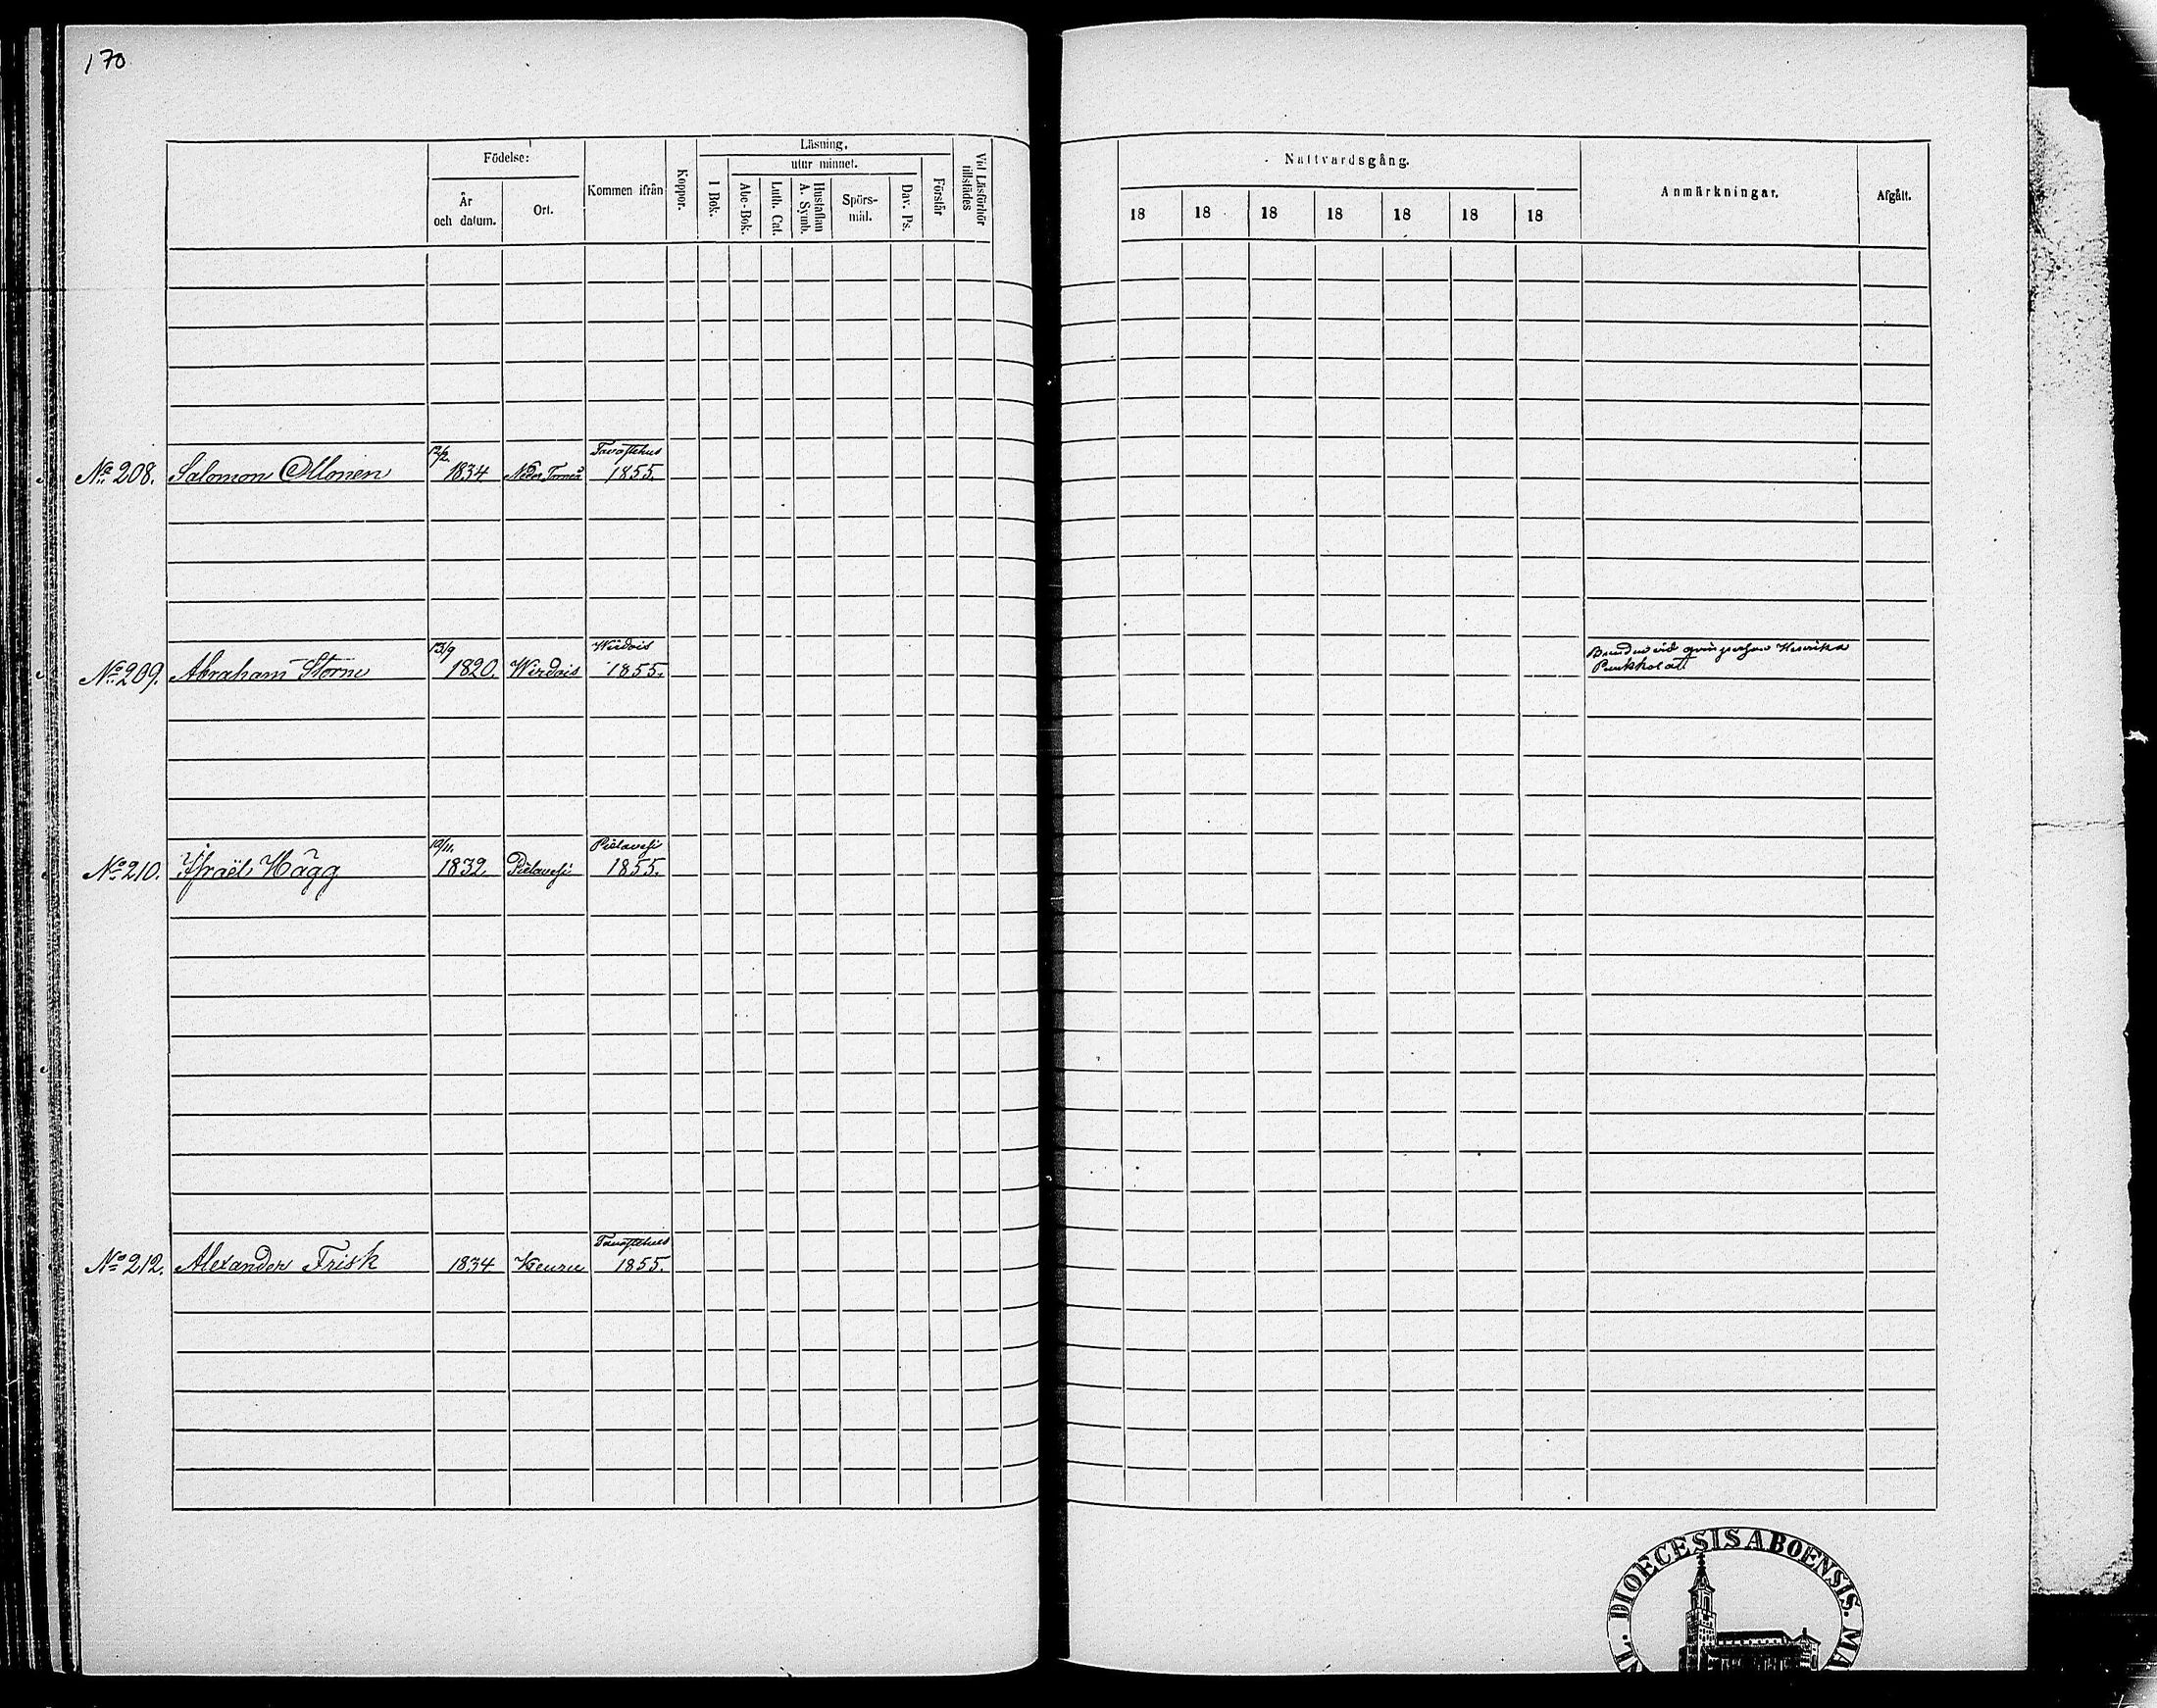 170
Födelse:
År och datum.
Ort.
Kommen ifrån
Koppor.
Läsning.
utur minnet.
I Bok.
Abc-Bok.
Luth. Cat.
Hustaflan A. Symb.
Spörs-mål.
Dav. Ps.
Förstår
Vid Läsförhör tillstädes
Nattvardsgång.
18 18 18 18 18 18 18
Anmärkningar.
Afgått.
12/2. Tavastehus
No 208. Salomon Ollonen 1834 Neder Torneå 1855.
13/9 Wirdois
No 209. Abraham Storm 1820. Wirdois 1855.
Bunden vid qvinspersonen Henrika
10/11. Pielavesi
No 210. Israël Hägg 1832 Pielavesi 1855.
Tavastehus
No 212. Alexander Frisk 1834 Keuru 1855.
DIOECESIS ABOENSIS. MA